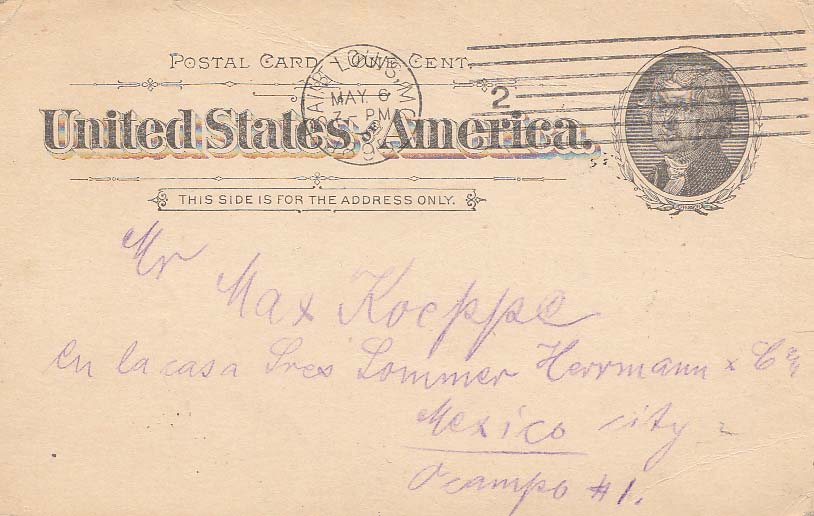 POSTAL CARD - ONE CENT.
SAINT LOUIS, MO.
MAY 6
7- PM
2
United States America.
THIS SIDE IS FOR THE ADDRESS ONLY.
Mr
Max Koeppe
en la casa Sres Sommer Herrmann & Cia
Mexico city
Ocampo #1.